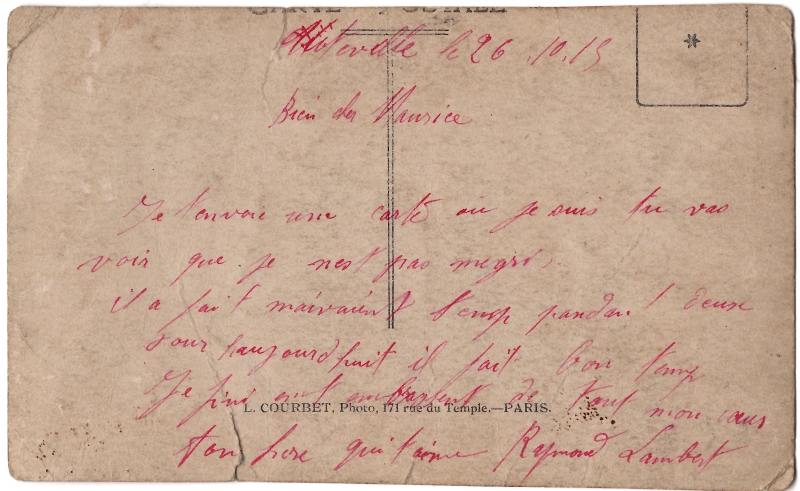 CARTE POSTALE
le 26.10.15
Bien cher Maurice
Je t'envoie une carte ou je suis tu vas
voir que je nest pas megri.
il a fait maivaient temp pandant deuse
jour haujourdhuit il fait bon temp
Je fini ent embrasent de tout mon cœur
L. COURBET, Photo, 171 rue du Temple.—PARIS.
ton frere qui t'aime Raymond Lambert